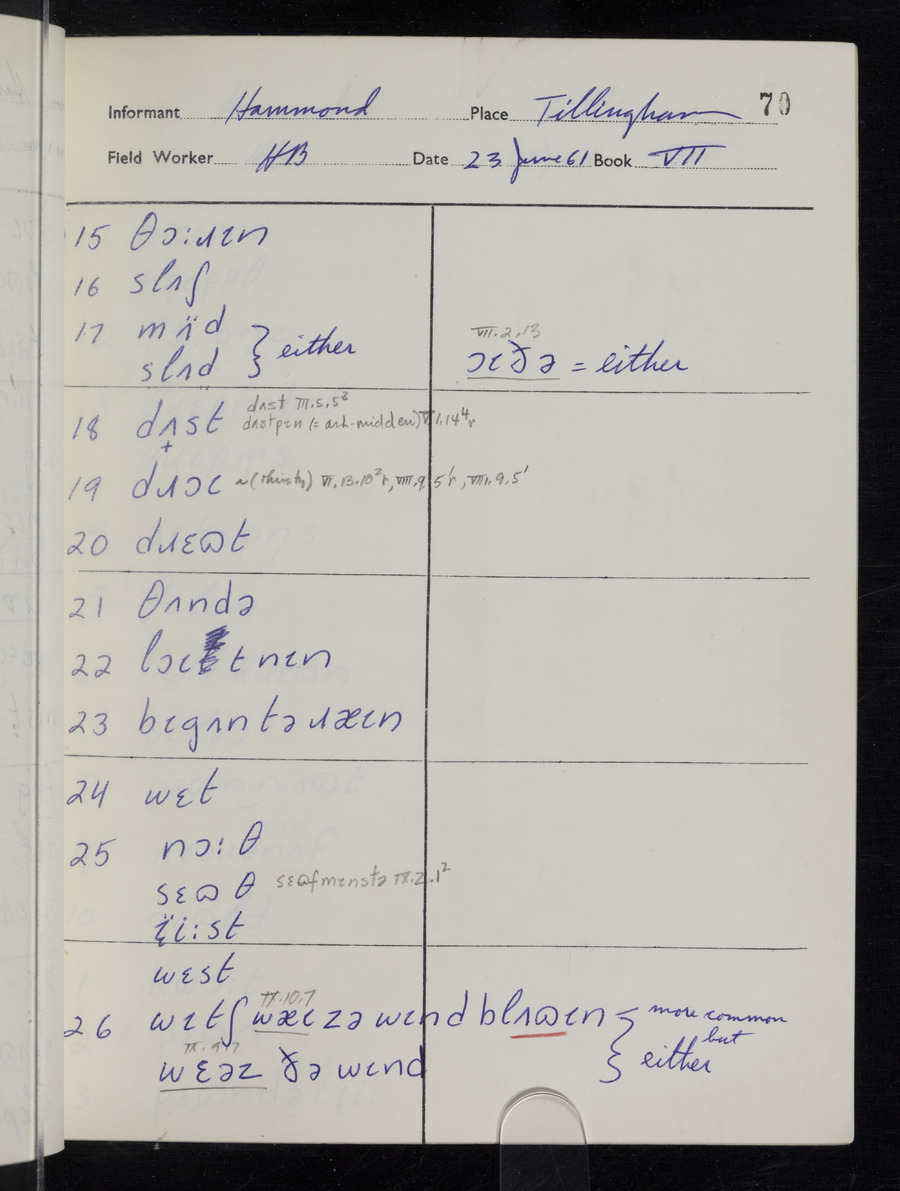 70
Informant Hammond Place Tillingham
Field Worker HB Date 23 June 61 Book VII
15 θɔ:ɹɪn
16 slʌʃ
17 mʌ̈d
slʌd } either
VII.2.13
ɔɪðə = either
18 dʌst dʌst III.5.5²
dʌstpɪn (= ash-midden) V.1.14⁴r
+
19 dɹɔɪ ~(thirsty) VI.13.10²r, VIII.9.5'r, VIII.9.5'
20 dɹɛɷt
21 θʌndə
22 lɔɪtnɪn
23 bɪgʌntəɹæɪn
24 wɛt
25 nɔ:θ
sɛɷθ sɛɷfmɪnstə IX.2.1²
ï̞i:st
wɛst
IX.10.7
26 wɪtʃ wæɪzə wɪnd blʌɷɪn } more common
but
IX.9.7
wɛəz ðə wɪnd } either